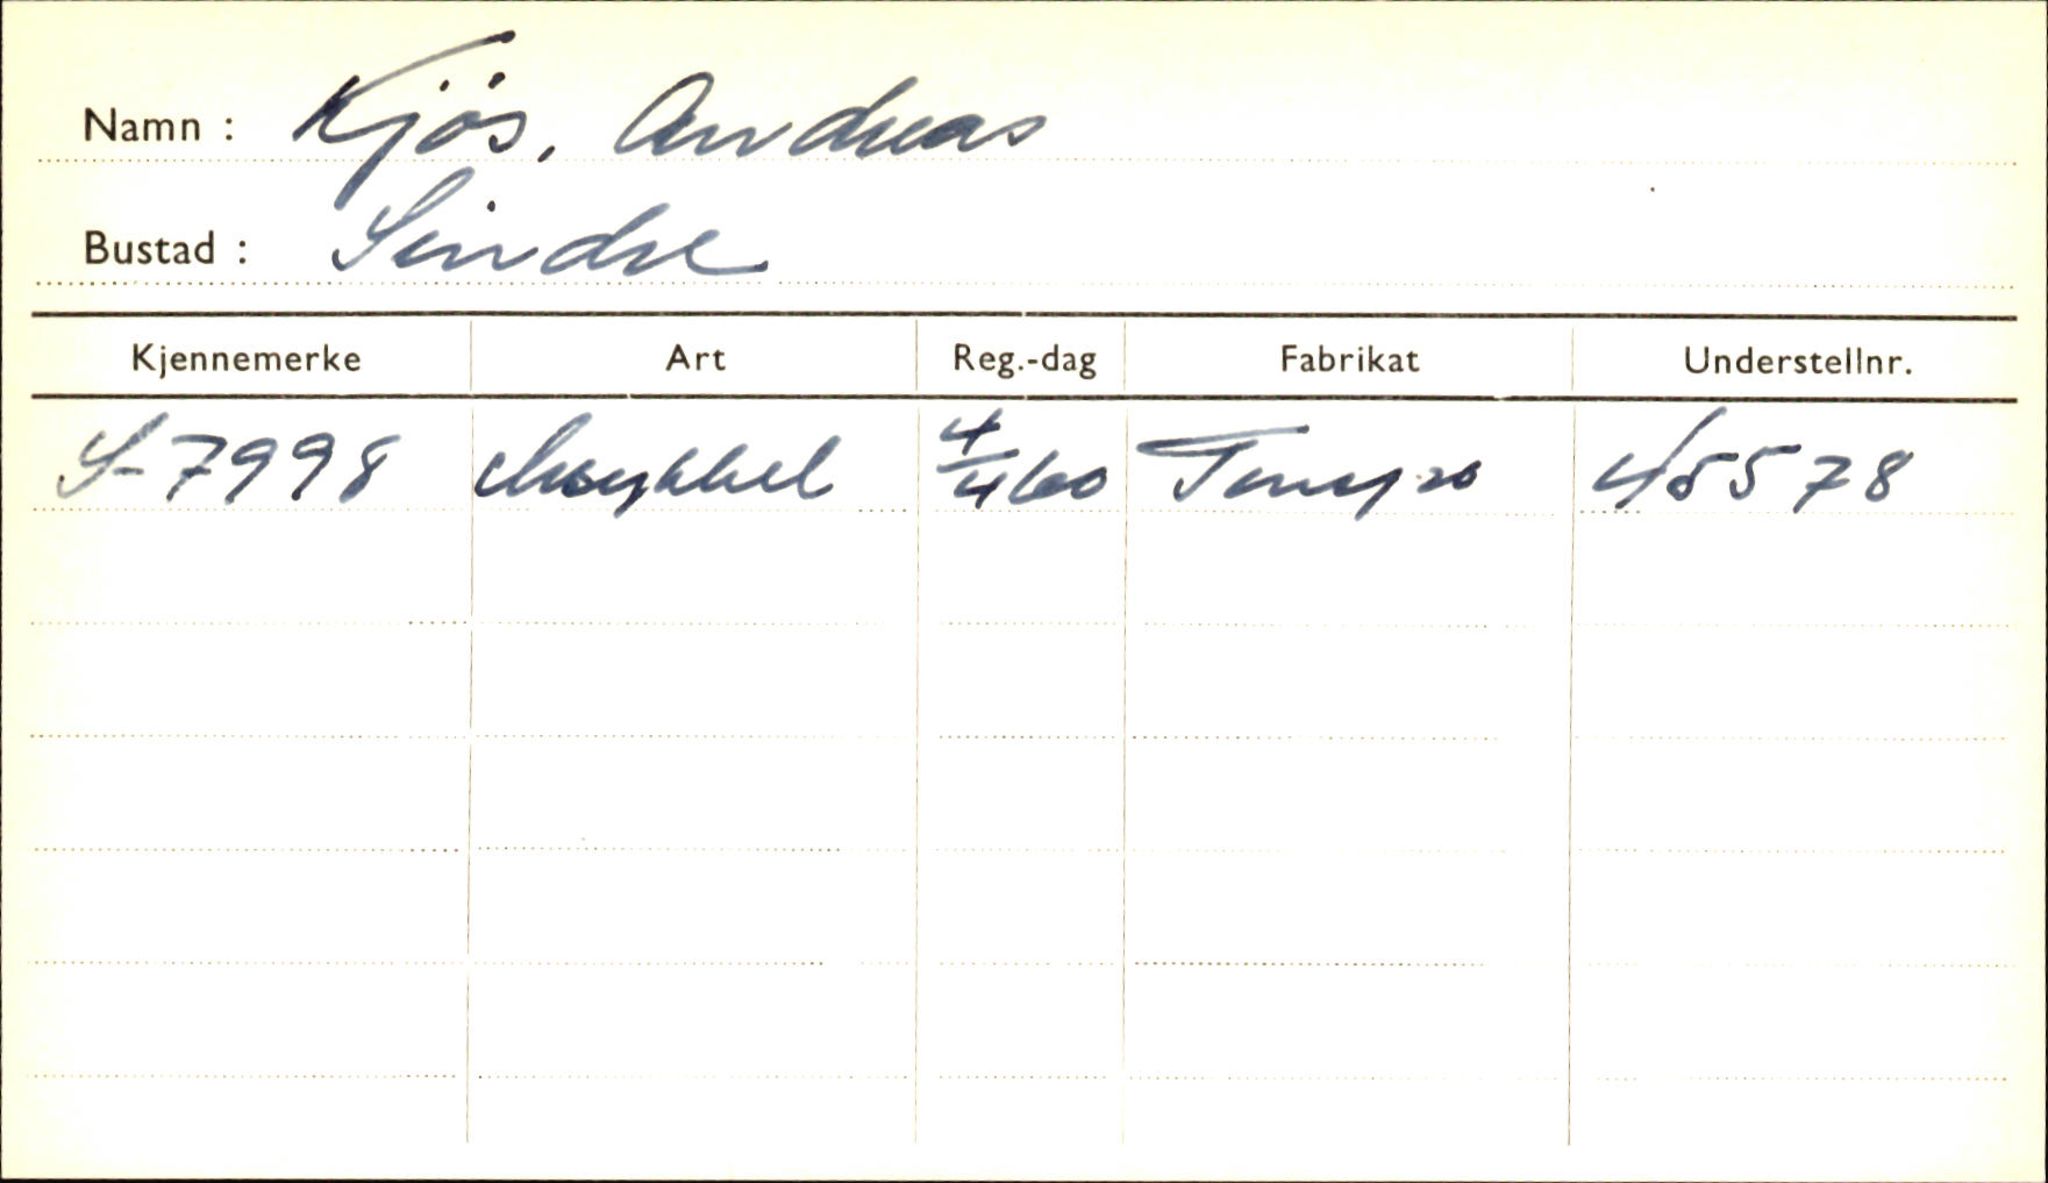 Namn : Kjös, Andreas
Bustad : Sindre
Kjennemerke Art Reg.-dag Fabrikat Understellnr.
S-7998 Mosykkel 4/4 60 Tempo 45578